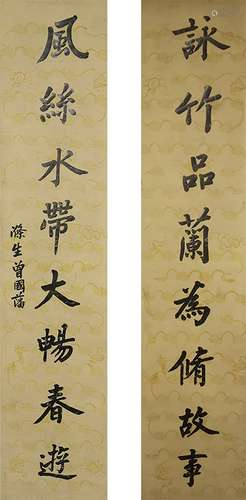 詠竹品蘭為脩故事
風絲水帶大暢春遊
滌生曾國藩